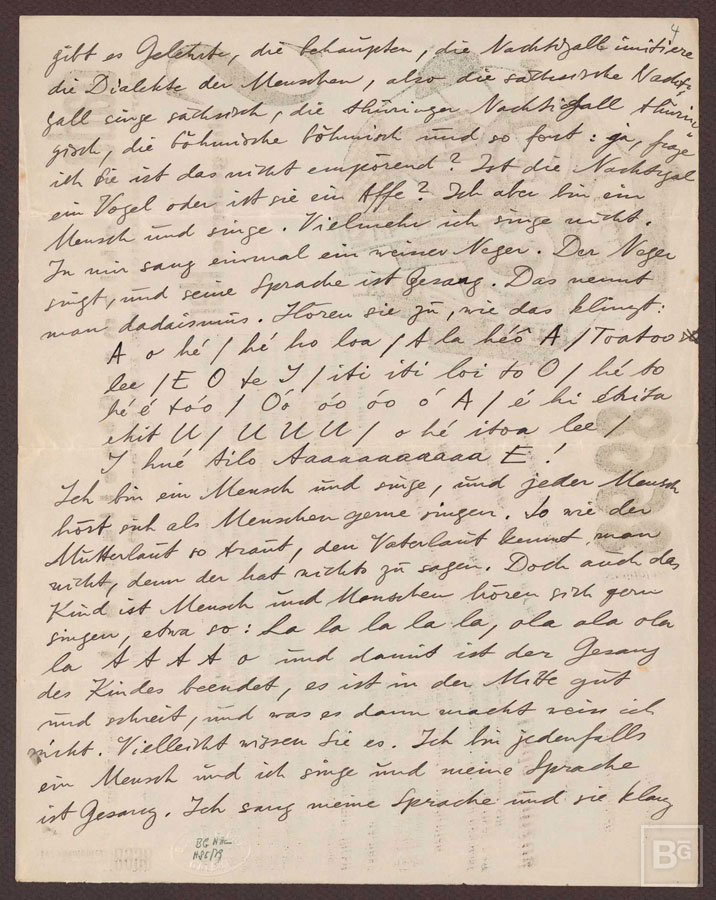 4
gibt es Gelehrte, die behaupten, die Nachtigall imitiere
die Dialekte der Menschen, also die sächsische Nachti-
gall singe sächsisch, die thüringer Nachtigall thürin-
gisch, die böhmische böhmisch und so fort: ja, frage
ich Sie ist das nicht empörend? Ist die Nachtigal
ein Vogel oder ist sie ein Affe? Ich aber bin ein
Mensch und singe. Vielmehr ich singe nicht.
In mir sang einmal ein weisser Neger. Der Neger
singt, und seine Sprache ist Gesang. Das nennt
man dadaismus. Hören sie zu, wie das klingt:
A o hé / hé ho loa / A la héô A / Toatoo
lee / E O te I / iti iti loi to O / hé to
hé é tóo / Oó óo óo ó A / é hi ehisa
ehit U / U U U / o hé itoa lee /
I hué tilo Aaaaaaaaaaa E!
Ich bin ein Mensch und singe, und jeder Mensch
hört sich als Menschen gerne singen. So wie der
Mutterlaut so traut, den Vaterlaut kennt man
nicht, denn der hat nichts zu sagen. Doch auch das
Kind ist Mensch und Menschen hören sich gern
singen, etwa so: La la la la la, ola ola ola
la A A A A o und damit ist der Gesang
des Kindes beendet, es ist in der Mitte gut
und schreit, und was es dann macht weiss ich
nicht. Vielleicht wissen Sie es. Ich bin jedenfalls
ein Mensch und ich singe und meine Sprache
ist Gesang. Ich sang meine Sprache und sie klang
BG
BG